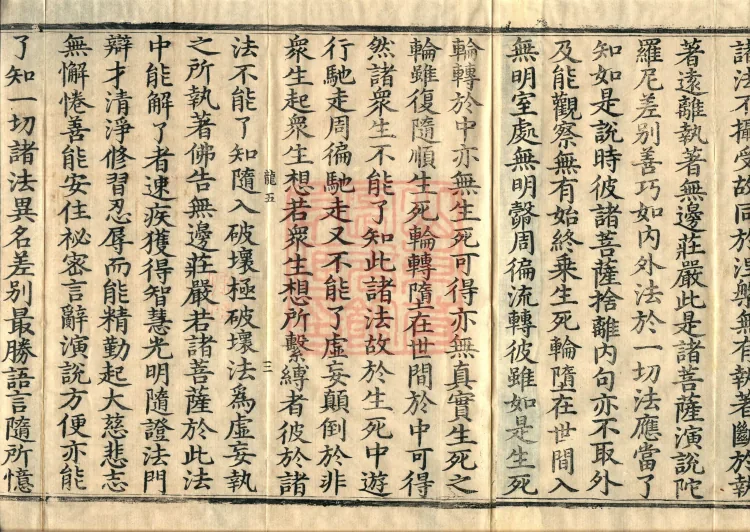 諸法不攝受故同於涅槃無有執著斷於執
著遠離執著無邊莊嚴此是諸菩薩演說陀
羅尼差別善巧如內外法於一切法應當了
知如是說時彼諸菩薩捨離內句亦不取外
及能觀察無有始終乘生死輪隨在世間入
無明室處無明翳周徧流轉彼雖如是生死
輪轉於中亦無生死可得亦無真實生死之
輪雖復隨順生死輪轉隨在世間於中可得
然諸衆生不能了知此諸法故於生死中遊
行馳走周徧馳走又不能了虛妄顛倒於非
衆生起衆生想若衆生想所繫縛者彼於諸
龍五 三
法不能了知隨入破壞極破壞法爲虛妄執
之所執著佛告無邊莊嚴若諸菩薩於此法
中能解了者速疾獲得智慧光明隨證法門
辯才清淨修習忍辱而能精勤起大慈悲志
無懈惓善能安住祕密言辭演說方便亦能
了知一切諸法異名差別最勝語言隨所憶